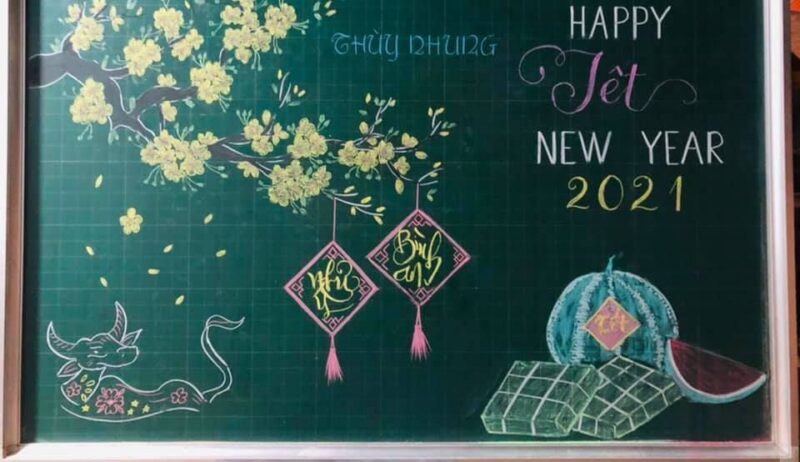 THÙY NHUNG
HAPPY
Tết
NEW YEAR
2021
Như
ý
Bình
an
Tết